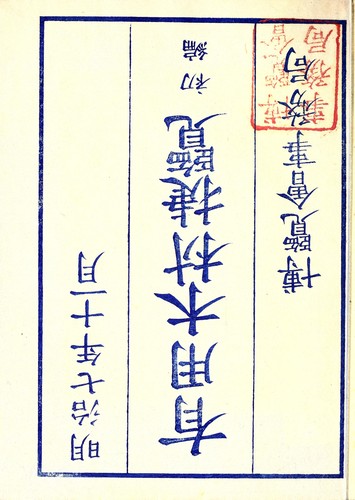 博覽會事務局
有用木材捷覽 初編
明治七年十一月